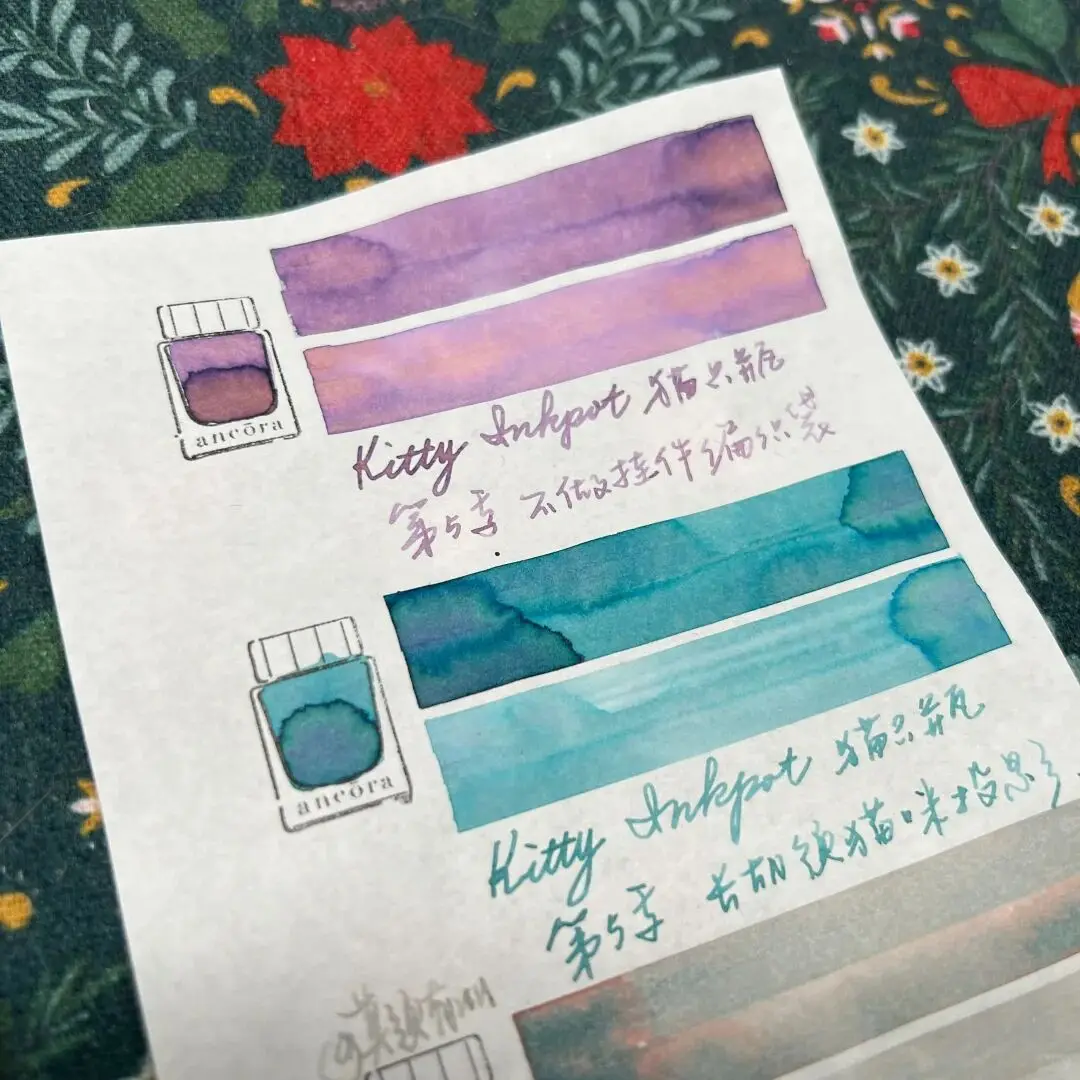 ancōra
Kitty Inkpot 猫只瓶
第5季 不做挂件编织袋
ancōra
Kitty Inkpot 猫只瓶
第5季 长胡须猫咪投影